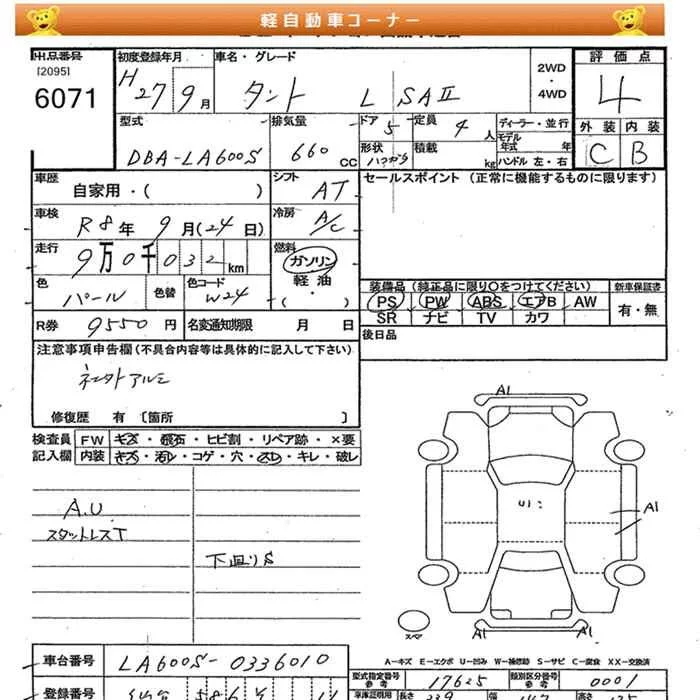 軽自動車コーナー
出品番号
[2095]
6071
初度登録年月
H 27年 9月
車名・グレード
タント L SAⅡ
2WD
・
4WD
評価点
4
外装 内装
C B
型式
DBA-LA600S
排気量
660 cc
ドア 5
形状 ハコガタ
定員 4人
積載 kg
ディーラー・並行
モデル年式 年
ハンドル 左・右
車歴
自家用・( )
シフト
AT
セールスポイント (正常に機能するものに限ります)
車検
R8年 9月(24日)
冷房
A/C
走行
9万0千032km
燃料
ガソリン
軽油
・
( )
色
パール
色替
色コード
W24
装備品 (純正品に限り○をつけてください)
PS PW ABS エアB AW
SR ナビ TV カワ
新車保証書
有・無
R券 9550円
名変通知期限 月 日
後日品
注意事項申告欄 (不具合内容等は具体的に記入して下さい)
社外アルミ
修復歴 有 [箇所 ]
検査員 FW キズ・飛石・ヒビ割・リペア跡・×要
記入欄 内装 キズ・汚レ・コゲ・穴・スレ・キレ・破レ
A.U
スタットレスT
下廻りS
A1
U1
A1
スペア
A1 A1
A-キズ E-エクボ U-凹み W-補修跡 S-サビ C-腐食 XX-交換済
車台番号
LA600S-0336010
型式指定番号 参考
17625
類別区分番号 参考
0001
登録番号
586
車庫証明用
長さ 339
幅 147
高さ